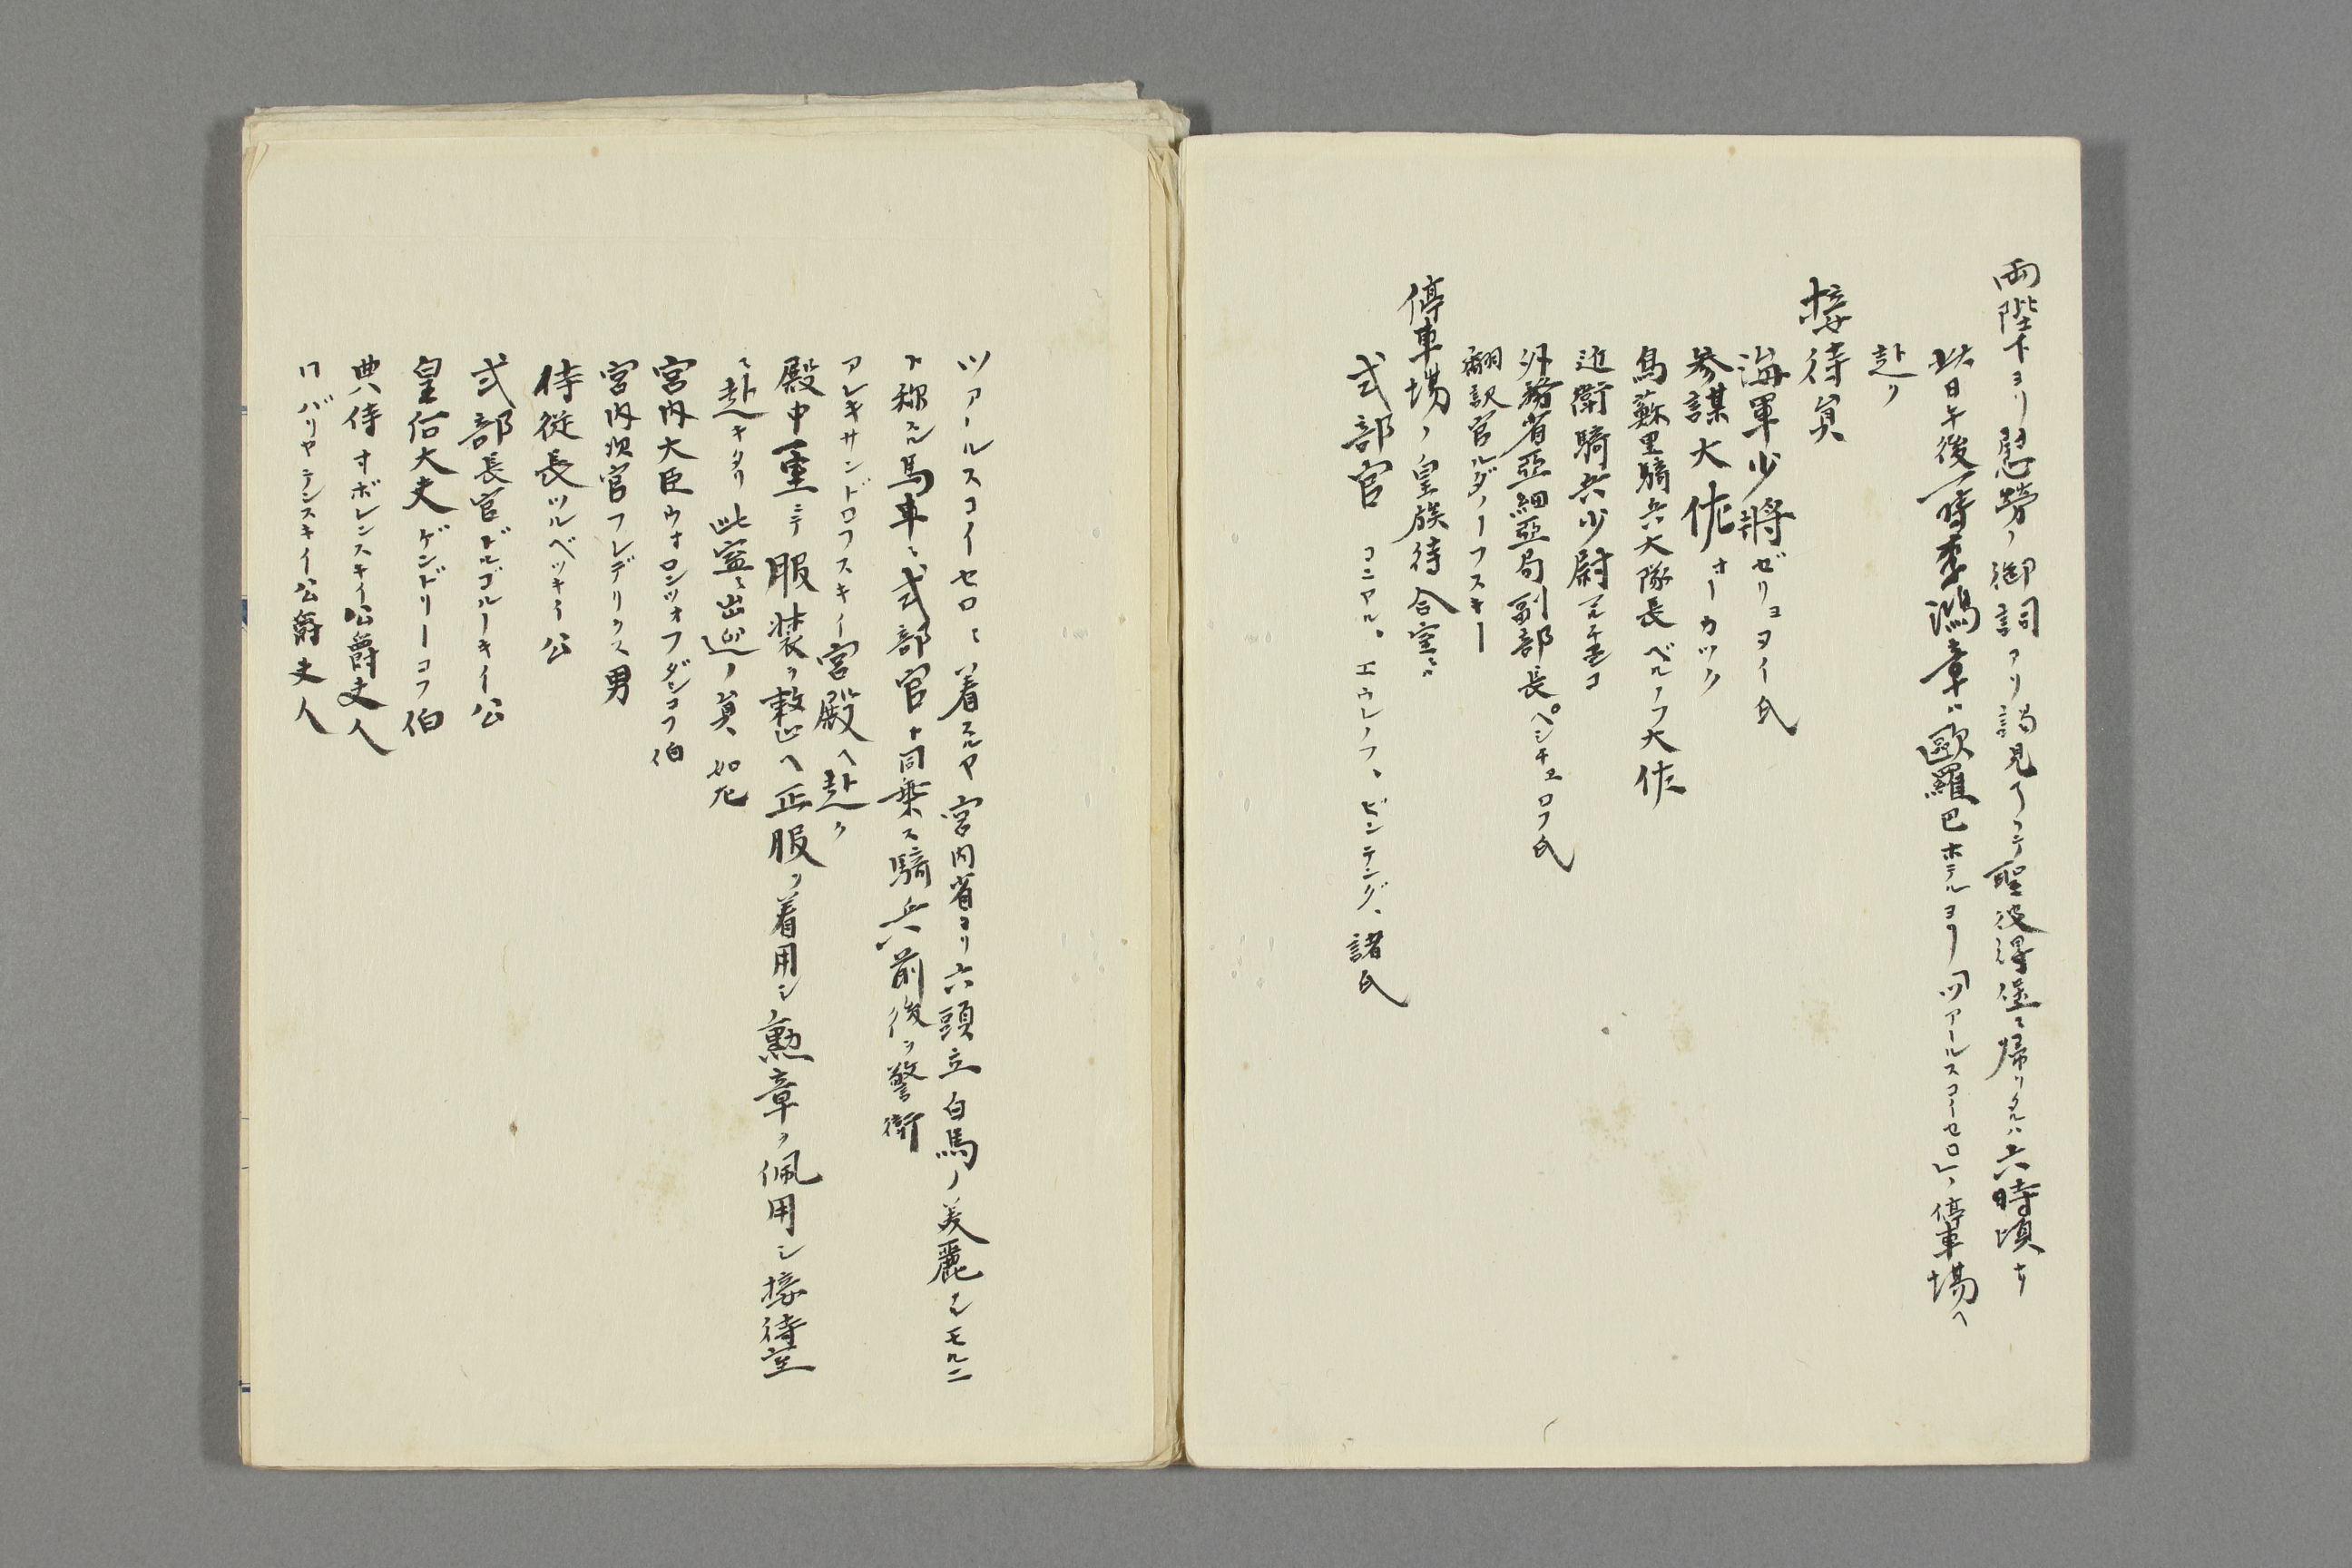 両陛下ヨリ慰労ノ御詞アリ謁見了テ聖彼得堡ニ帰リタルハ六時頃ナリ
此日午後一時李鴻章ハ欧羅巴ホテルヨリツアールスコイセロノ停車場ヘ
赴ク
接待員
海軍少将ゼリヨヲイ氏
参謀大佐オーカツク
烏蘇里騎兵大隊長ベルノフ大佐
近衛騎兵少尉
外務省亜細亜局副部長ペシチユロフ氏
翻訳官ルダノーフスキー
停車場ノ皇族待合室ニハ
式部官 コニアル、エウレノフ、ビンテング、諸氏
ツアールスコイセロニ着スルヤ宮内省ヨリ六頭立白馬ノ美麗ナル
ト称スル馬車ニ式部官ト同乗ス騎兵前後ヲ警衛
アレキサンドロフスキイ宮殿ヘ赴ク
殿中一室ニテ服装ヲ整ヘ正服ヲ着用シ勲章ヲ佩用シ接待室
ニ赴キタリ此室ニ出迎ノ員如左
宮内大臣ウオロンツオフダシコフ伯
宮内次官フレデリクス男
侍従長ツルベツキイ公
式部長官ドルゴルーキイ公
皇后大夫ゲンドリーコフ伯
典侍オボレンスキイ公爵夫人
仝バリヤテンスキイ公爵夫人